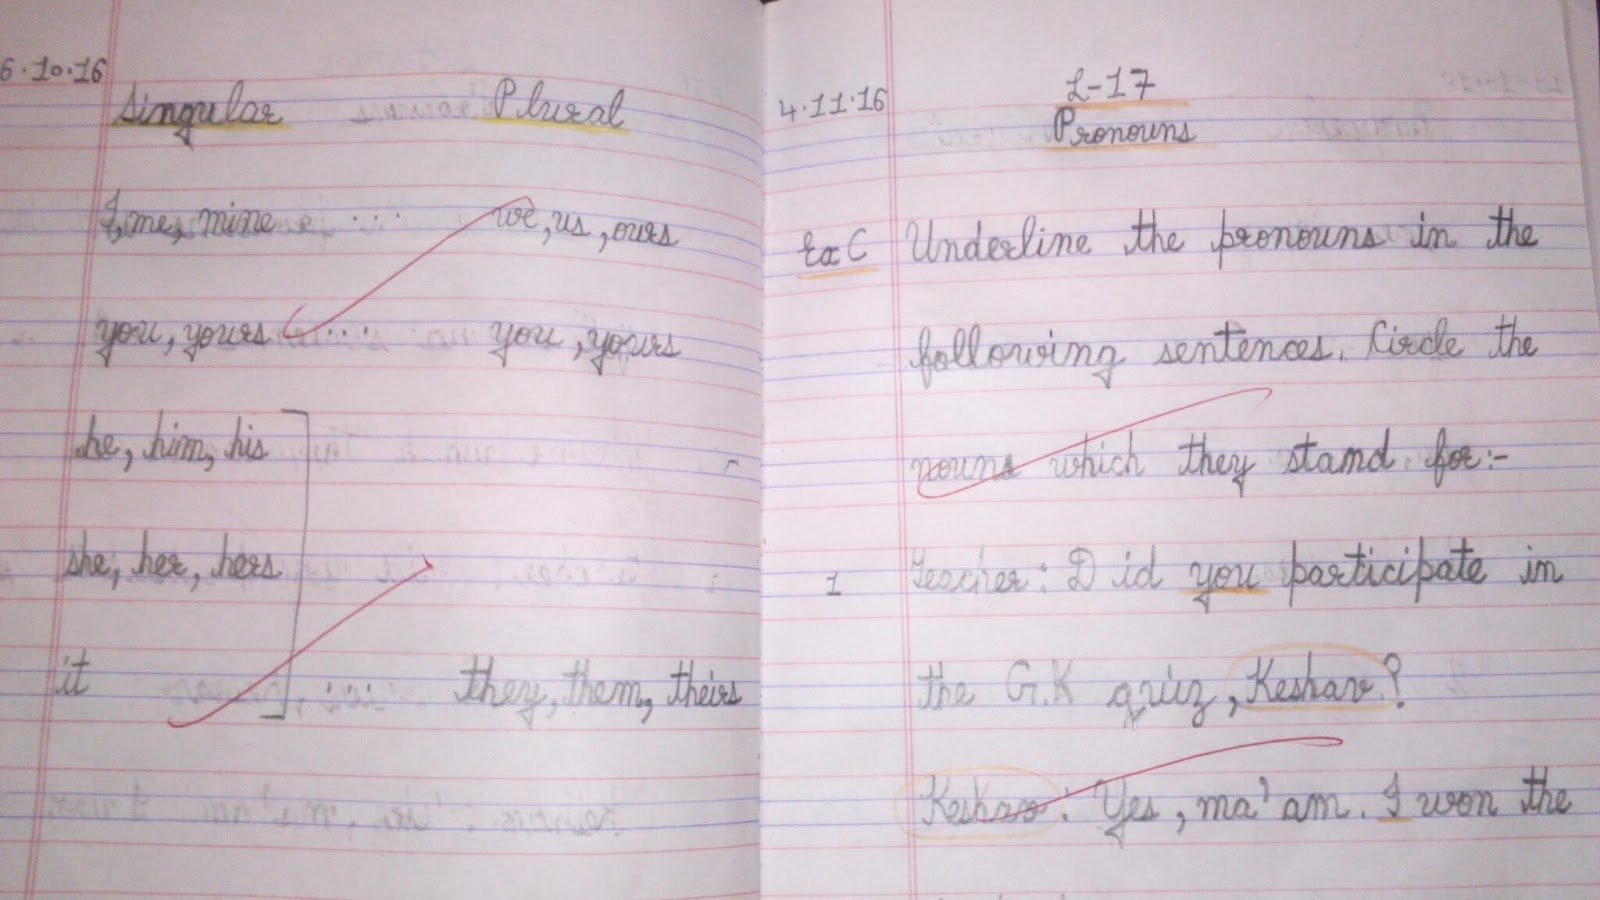 6.10.16
Singular Plural
I, me, mine ... we, us, ours
you, yours .... you, yours
he, him, his
she, her, hers
it .... they, them, theirs
4.11.16
L-17
Pronouns
Ex C Underline the pronouns in the
following sentences. Circle the
nouns which they stand for:-
1 Teacher: Did you participate in
the G.K quiz, Keshav?
Keshav: Yes, ma'am. I won the